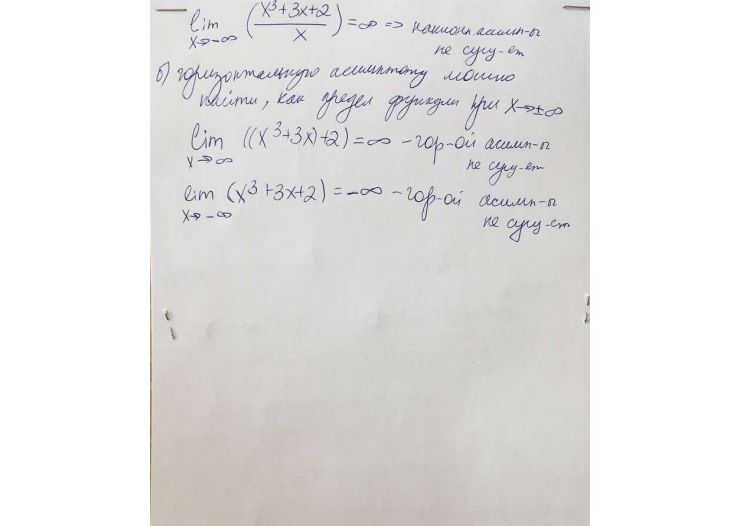 lim (x³+3x+2 / x) = ∞ => наклонн. асимп-ы
x→-∞ не сущ-ет
б) горизонтальную асимптоту можно
найти, как предел функции при x→±∞
lim ((x³+3x)+2) = ∞ - гор-ой асимп-ы
x→∞ не сущ-ет
lim (x³+3x+2) = -∞ - гор-ой асимп-ы
x→-∞ не сущ-ет